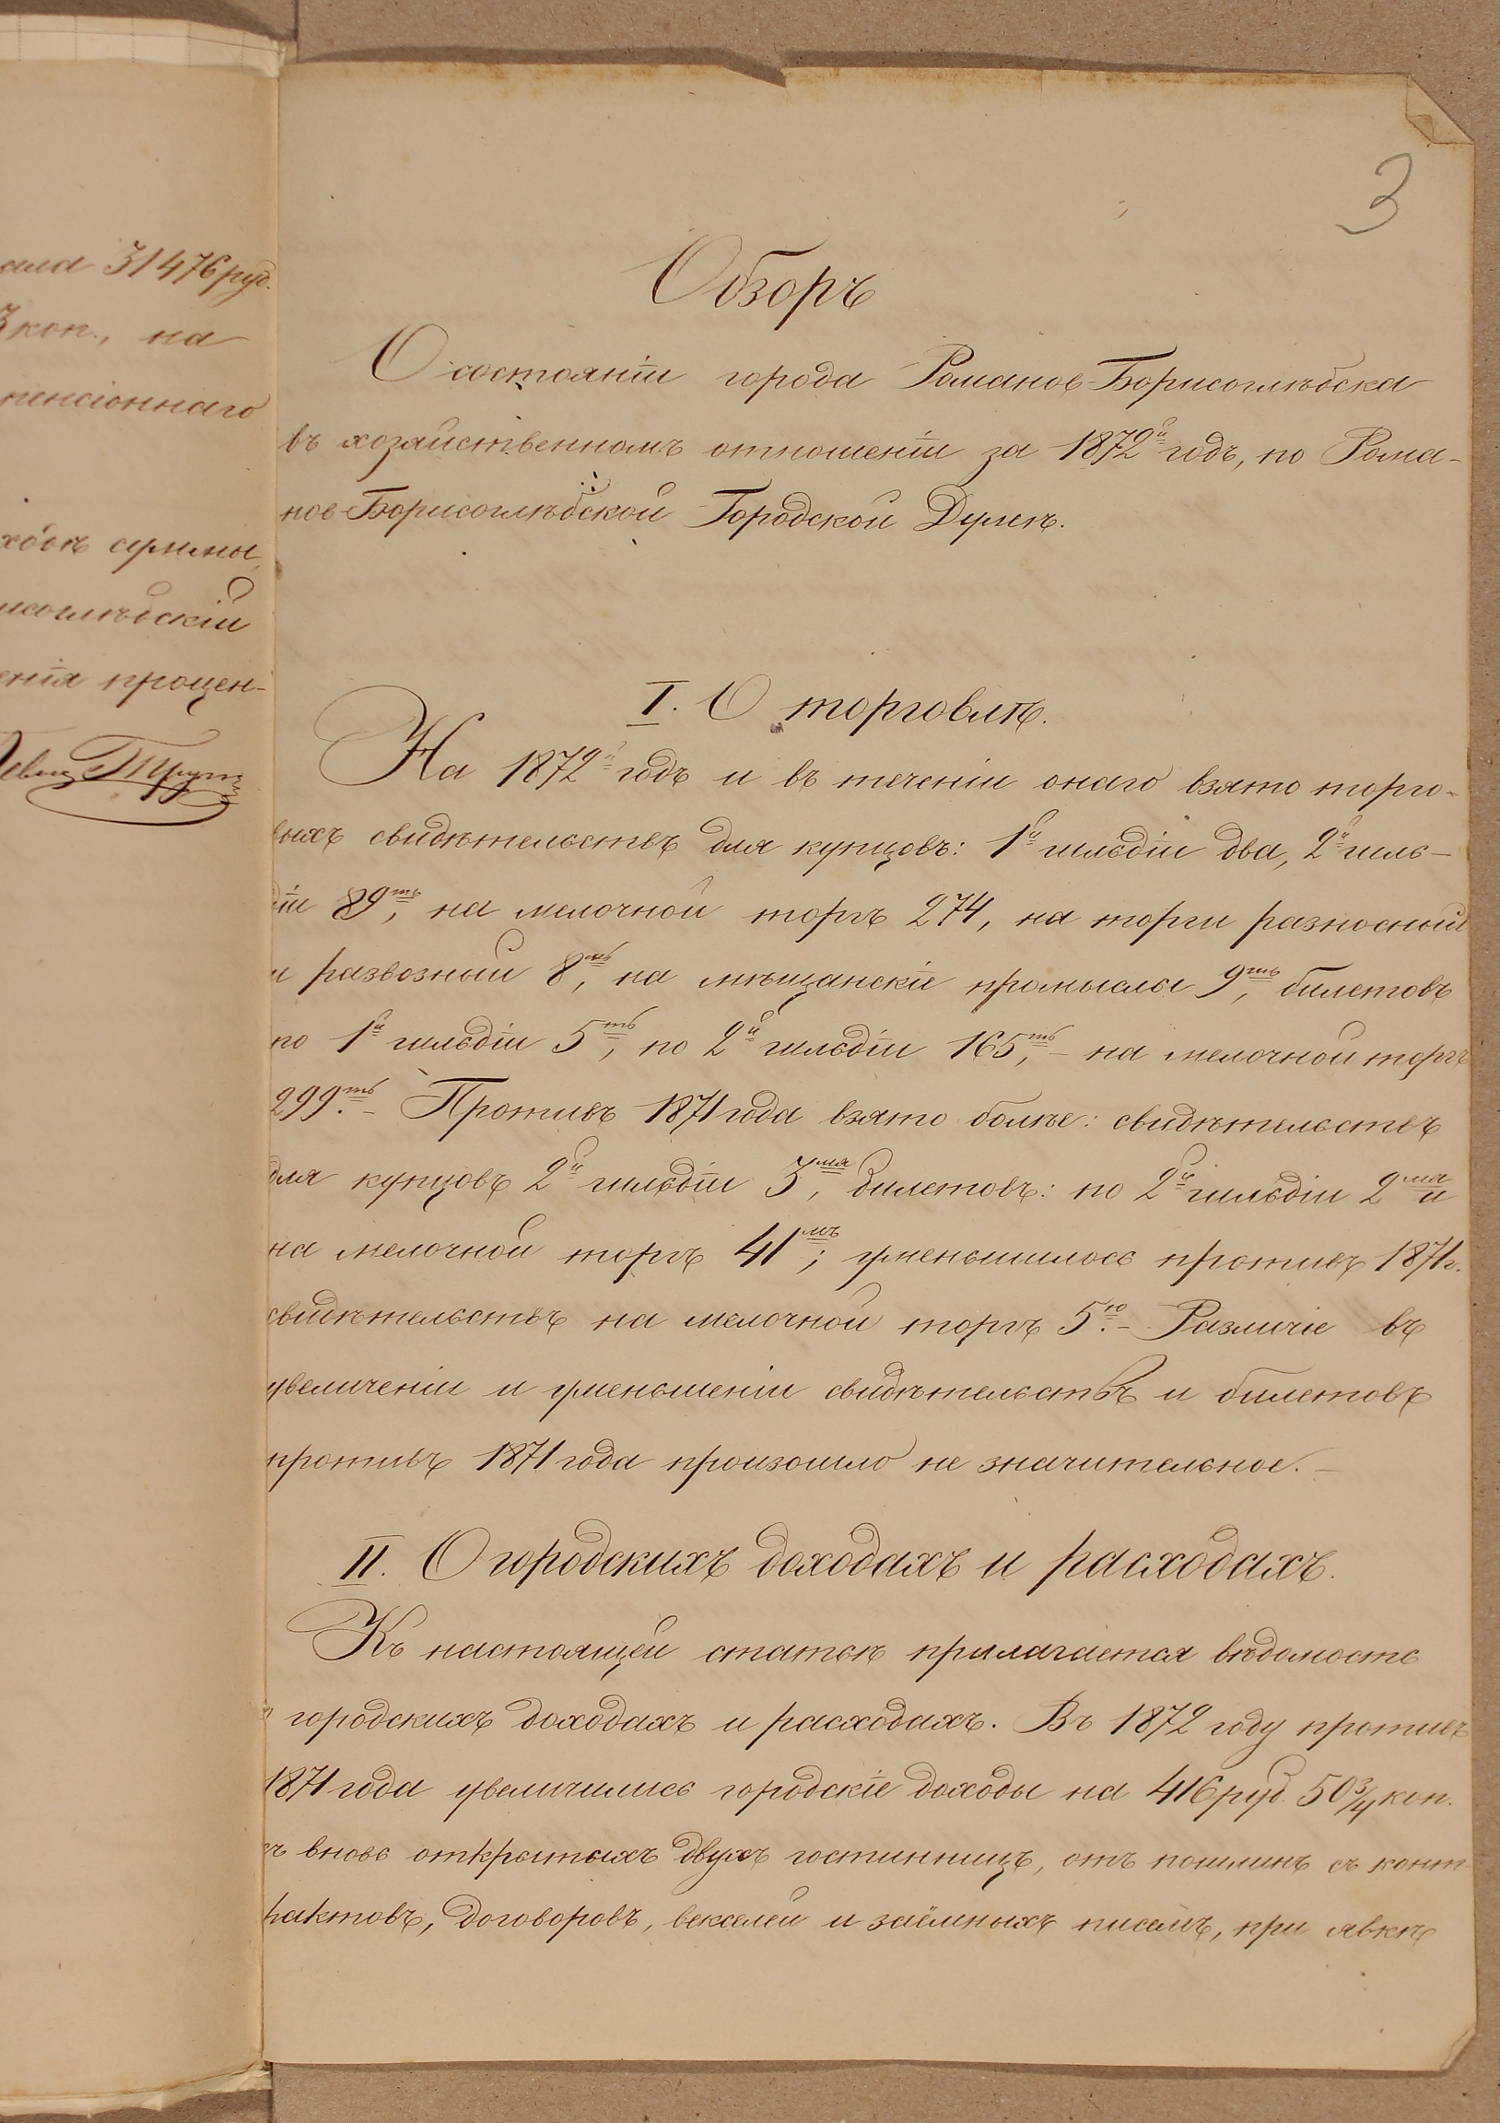 3
Обзоръ
О состоянiи города Романов-Борисоглѣбска
въ хозяйственномъ отношенiи за 1872й годъ, по Рома-
нов-Борисоглѣбской Городской Думѣ.
I. О торговлѣ.
На 1872й годъ и въ теченiи онаго взято торго-
выхъ свидѣтельствъ для купцовъ: 1й гильдiи два, 2й гиль-
дiи 89ть, на мелочной торгъ 274, на торги разносный
и развозный 8мь, на мѣщанскiе промыслы 9ть, билетовъ
по 1й гильдiи 5ть, по 2й гильдiи 165ть, - на мелочной торгъ
299ть. - Противъ 1871 года взято болѣе: свидѣтельствъ
для купцовъ 2й гильдiи 3мя, билетовъ: по 2й гильдiи 2мя и
на мелочной торгъ 41мъ; уменьшилось противъ 1871 г.
свидѣтельствъ на мелочной торгъ 5ю. - Различiе въ
увеличенiи и уменьшенiи свидѣтельствъ и билетовъ
противъ 1871 года произошло не значительное. -
II. О городскихъ доходахъ и расходахъ.
Къ настоящей статьѣ прилагается вѣдомость
о городскихъ доходахъ и расходахъ. Въ 1872 году противъ
1871 года увеличились городскiе доходы на 416 руб. 50 3/4 коп.
съ вновь открытыхъ двухъ гостинницъ, отъ пошлинъ съ конт-
рактовъ, договоровъ, векселей и заёмныхъ писемъ, при явкѣ
ала 31476 руб.
3 коп., на
пенсiоннаго
суммы
исоглѣбскiй
енiя процен-